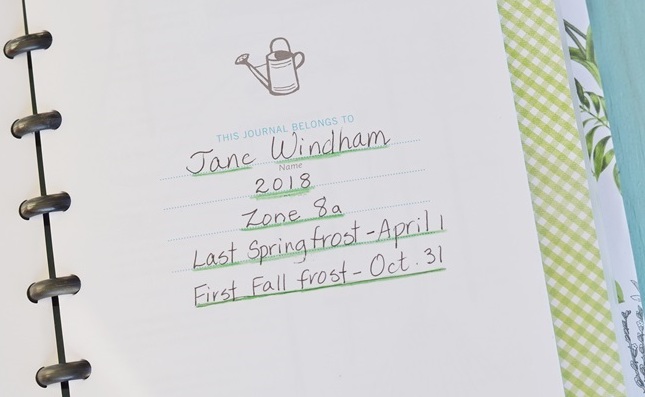 THIS JOURNAL BELONGS TO
Jane Windham
Name
2018
Zone 8a
Last Spring frost - April 1
First Fall frost - Oct. 31